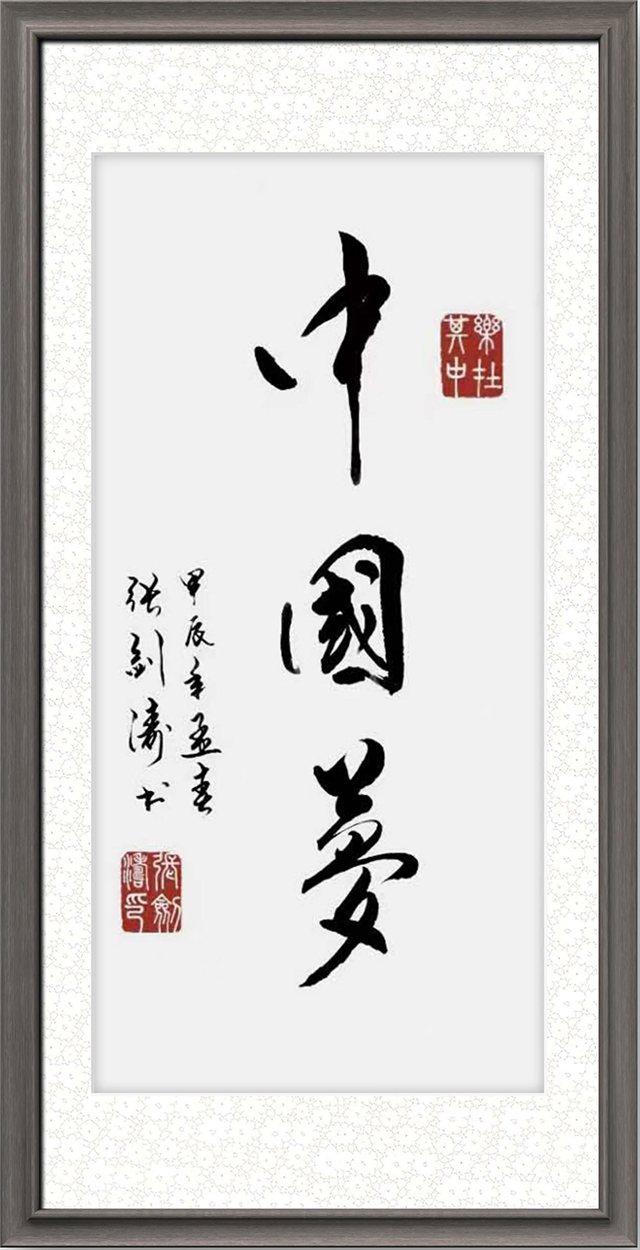 樂在其中
中國夢
甲辰年孟春
张剑涛书
張劍濤印